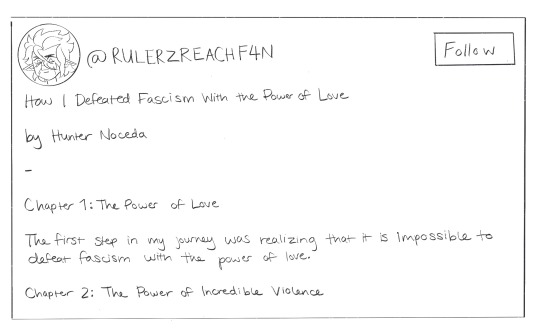 @RULERZREACHF4N
Follow
How I Defeated Fascism With the Power of Love
by Hunter Noceda
-
Chapter 1: The Power of Love
The first step in my journey was realizing that it is impossible to
defeat fascism with the power of love.
Chapter 2: The Power of Incredible Violence